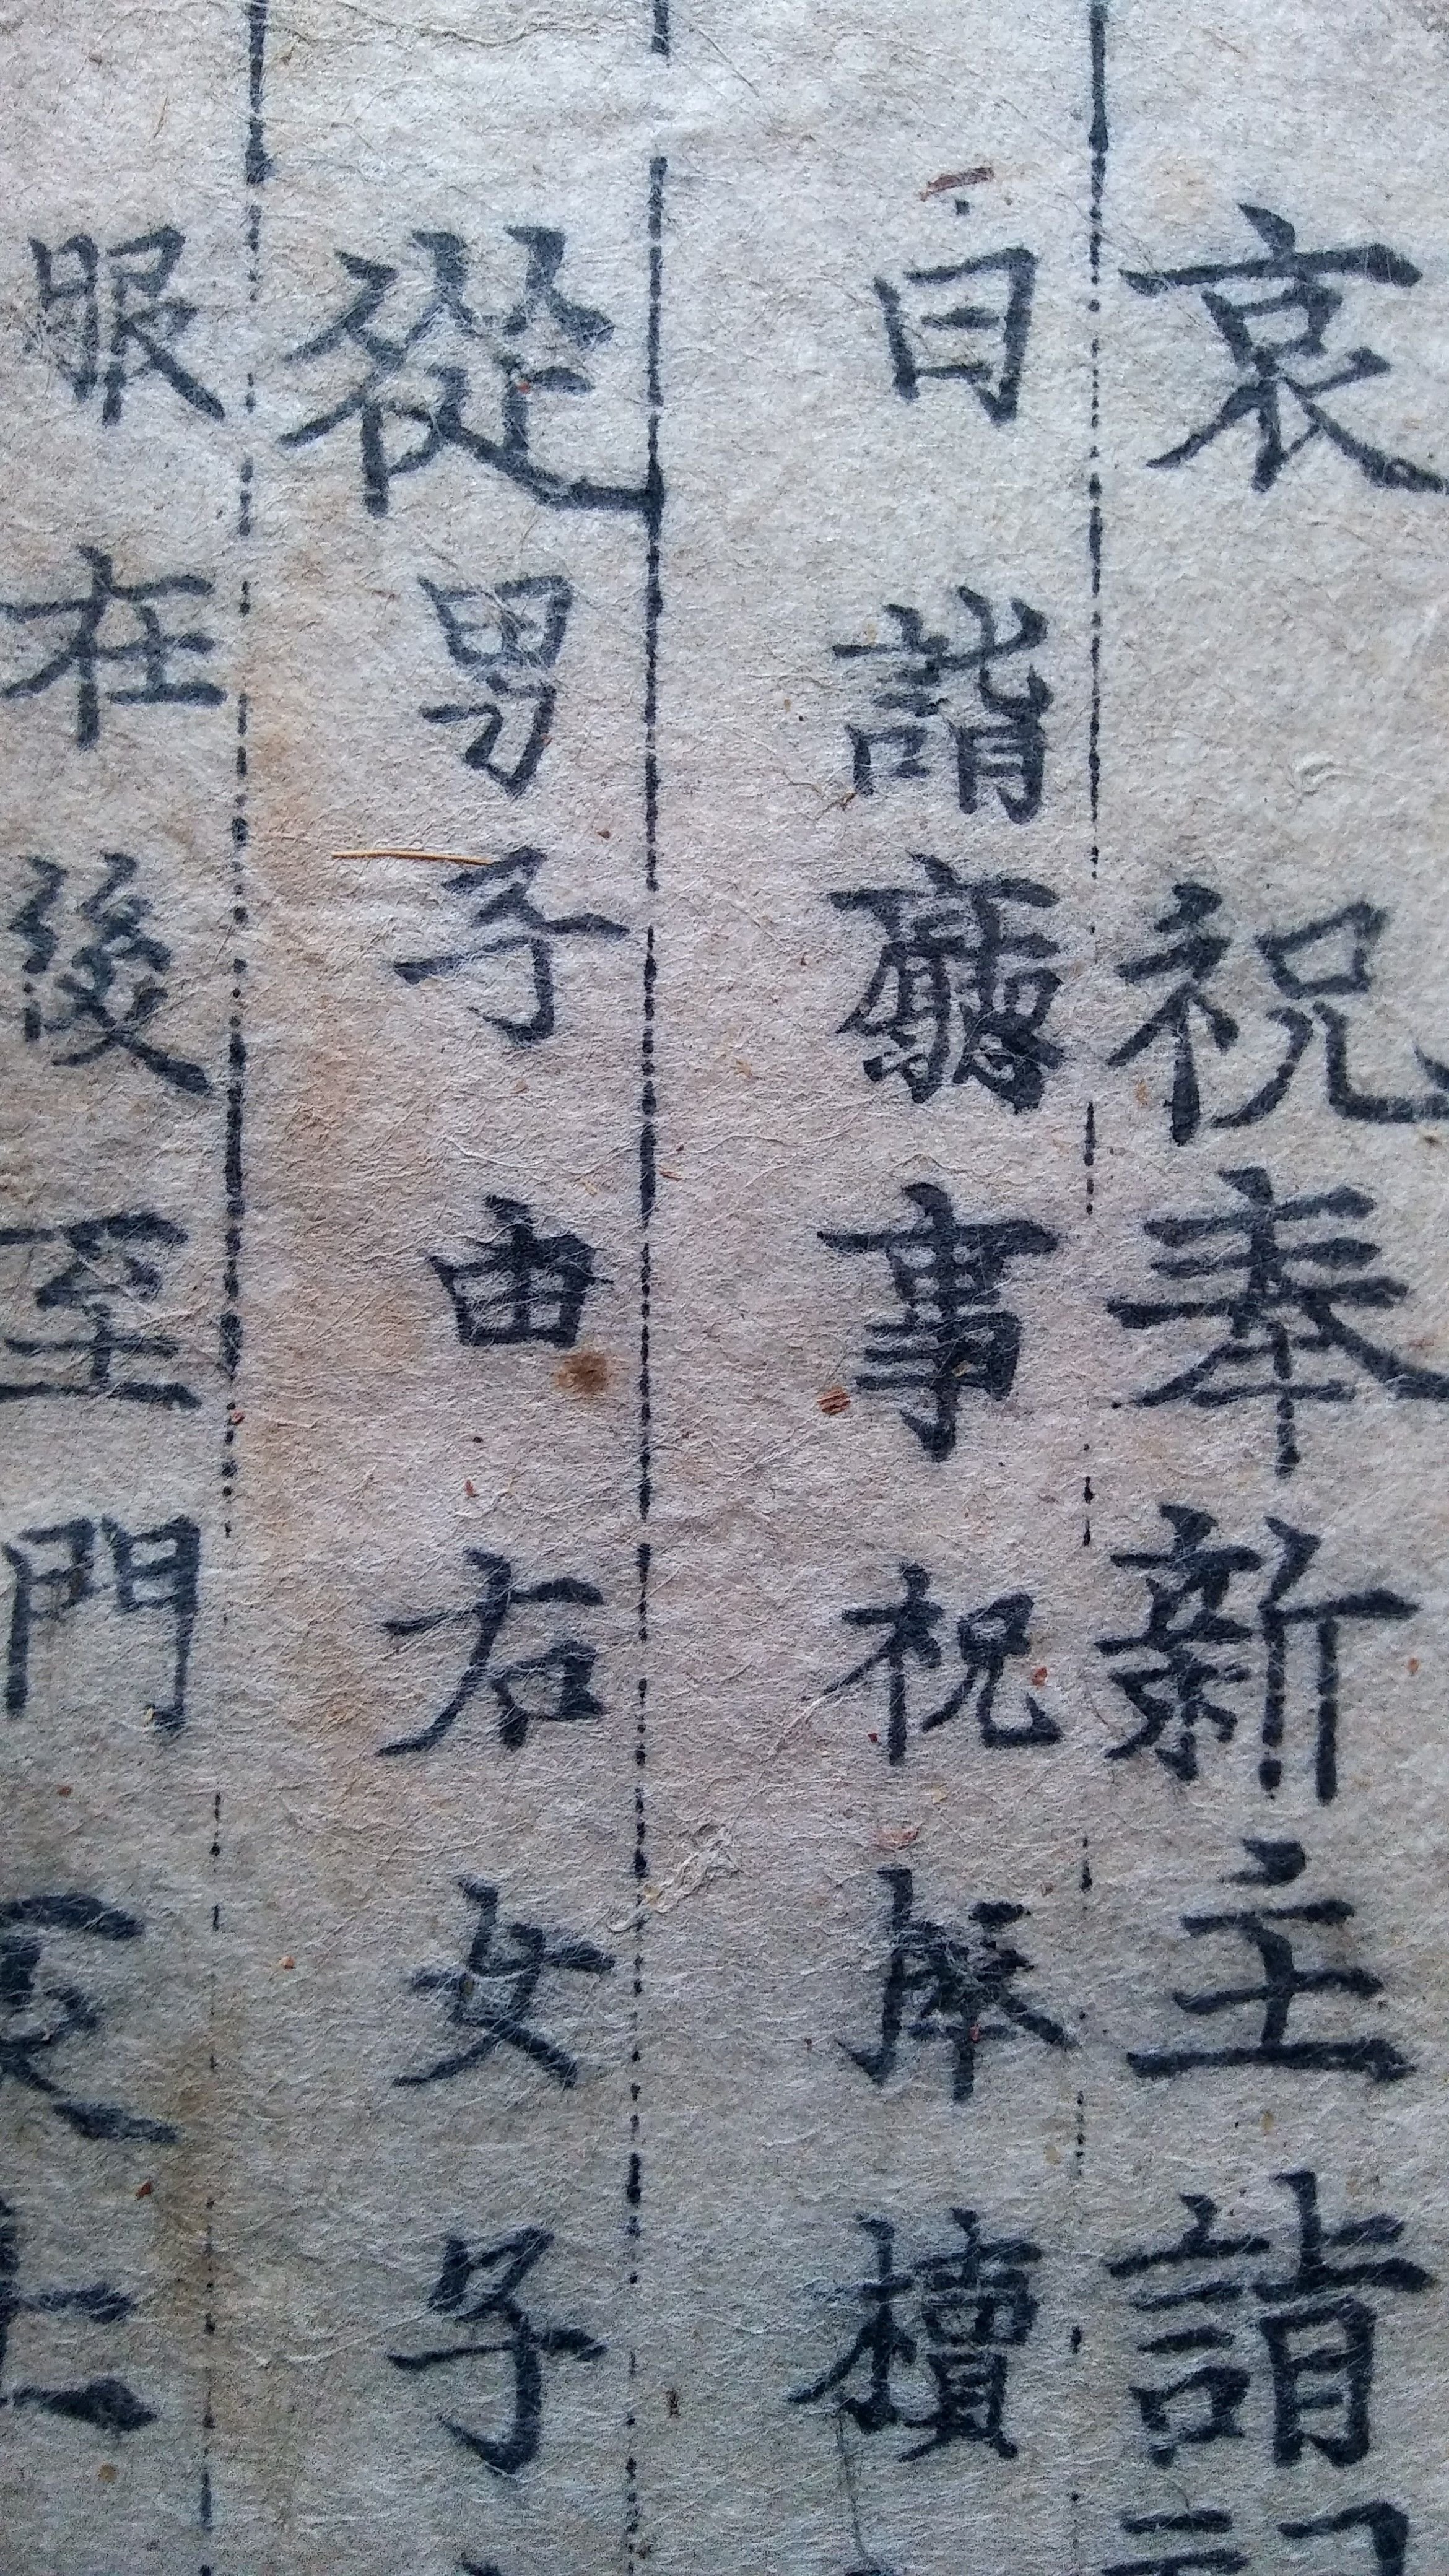 哀祝奉新主詣
日詣廳事祝櫝
從男子由右女子
眼在後至門